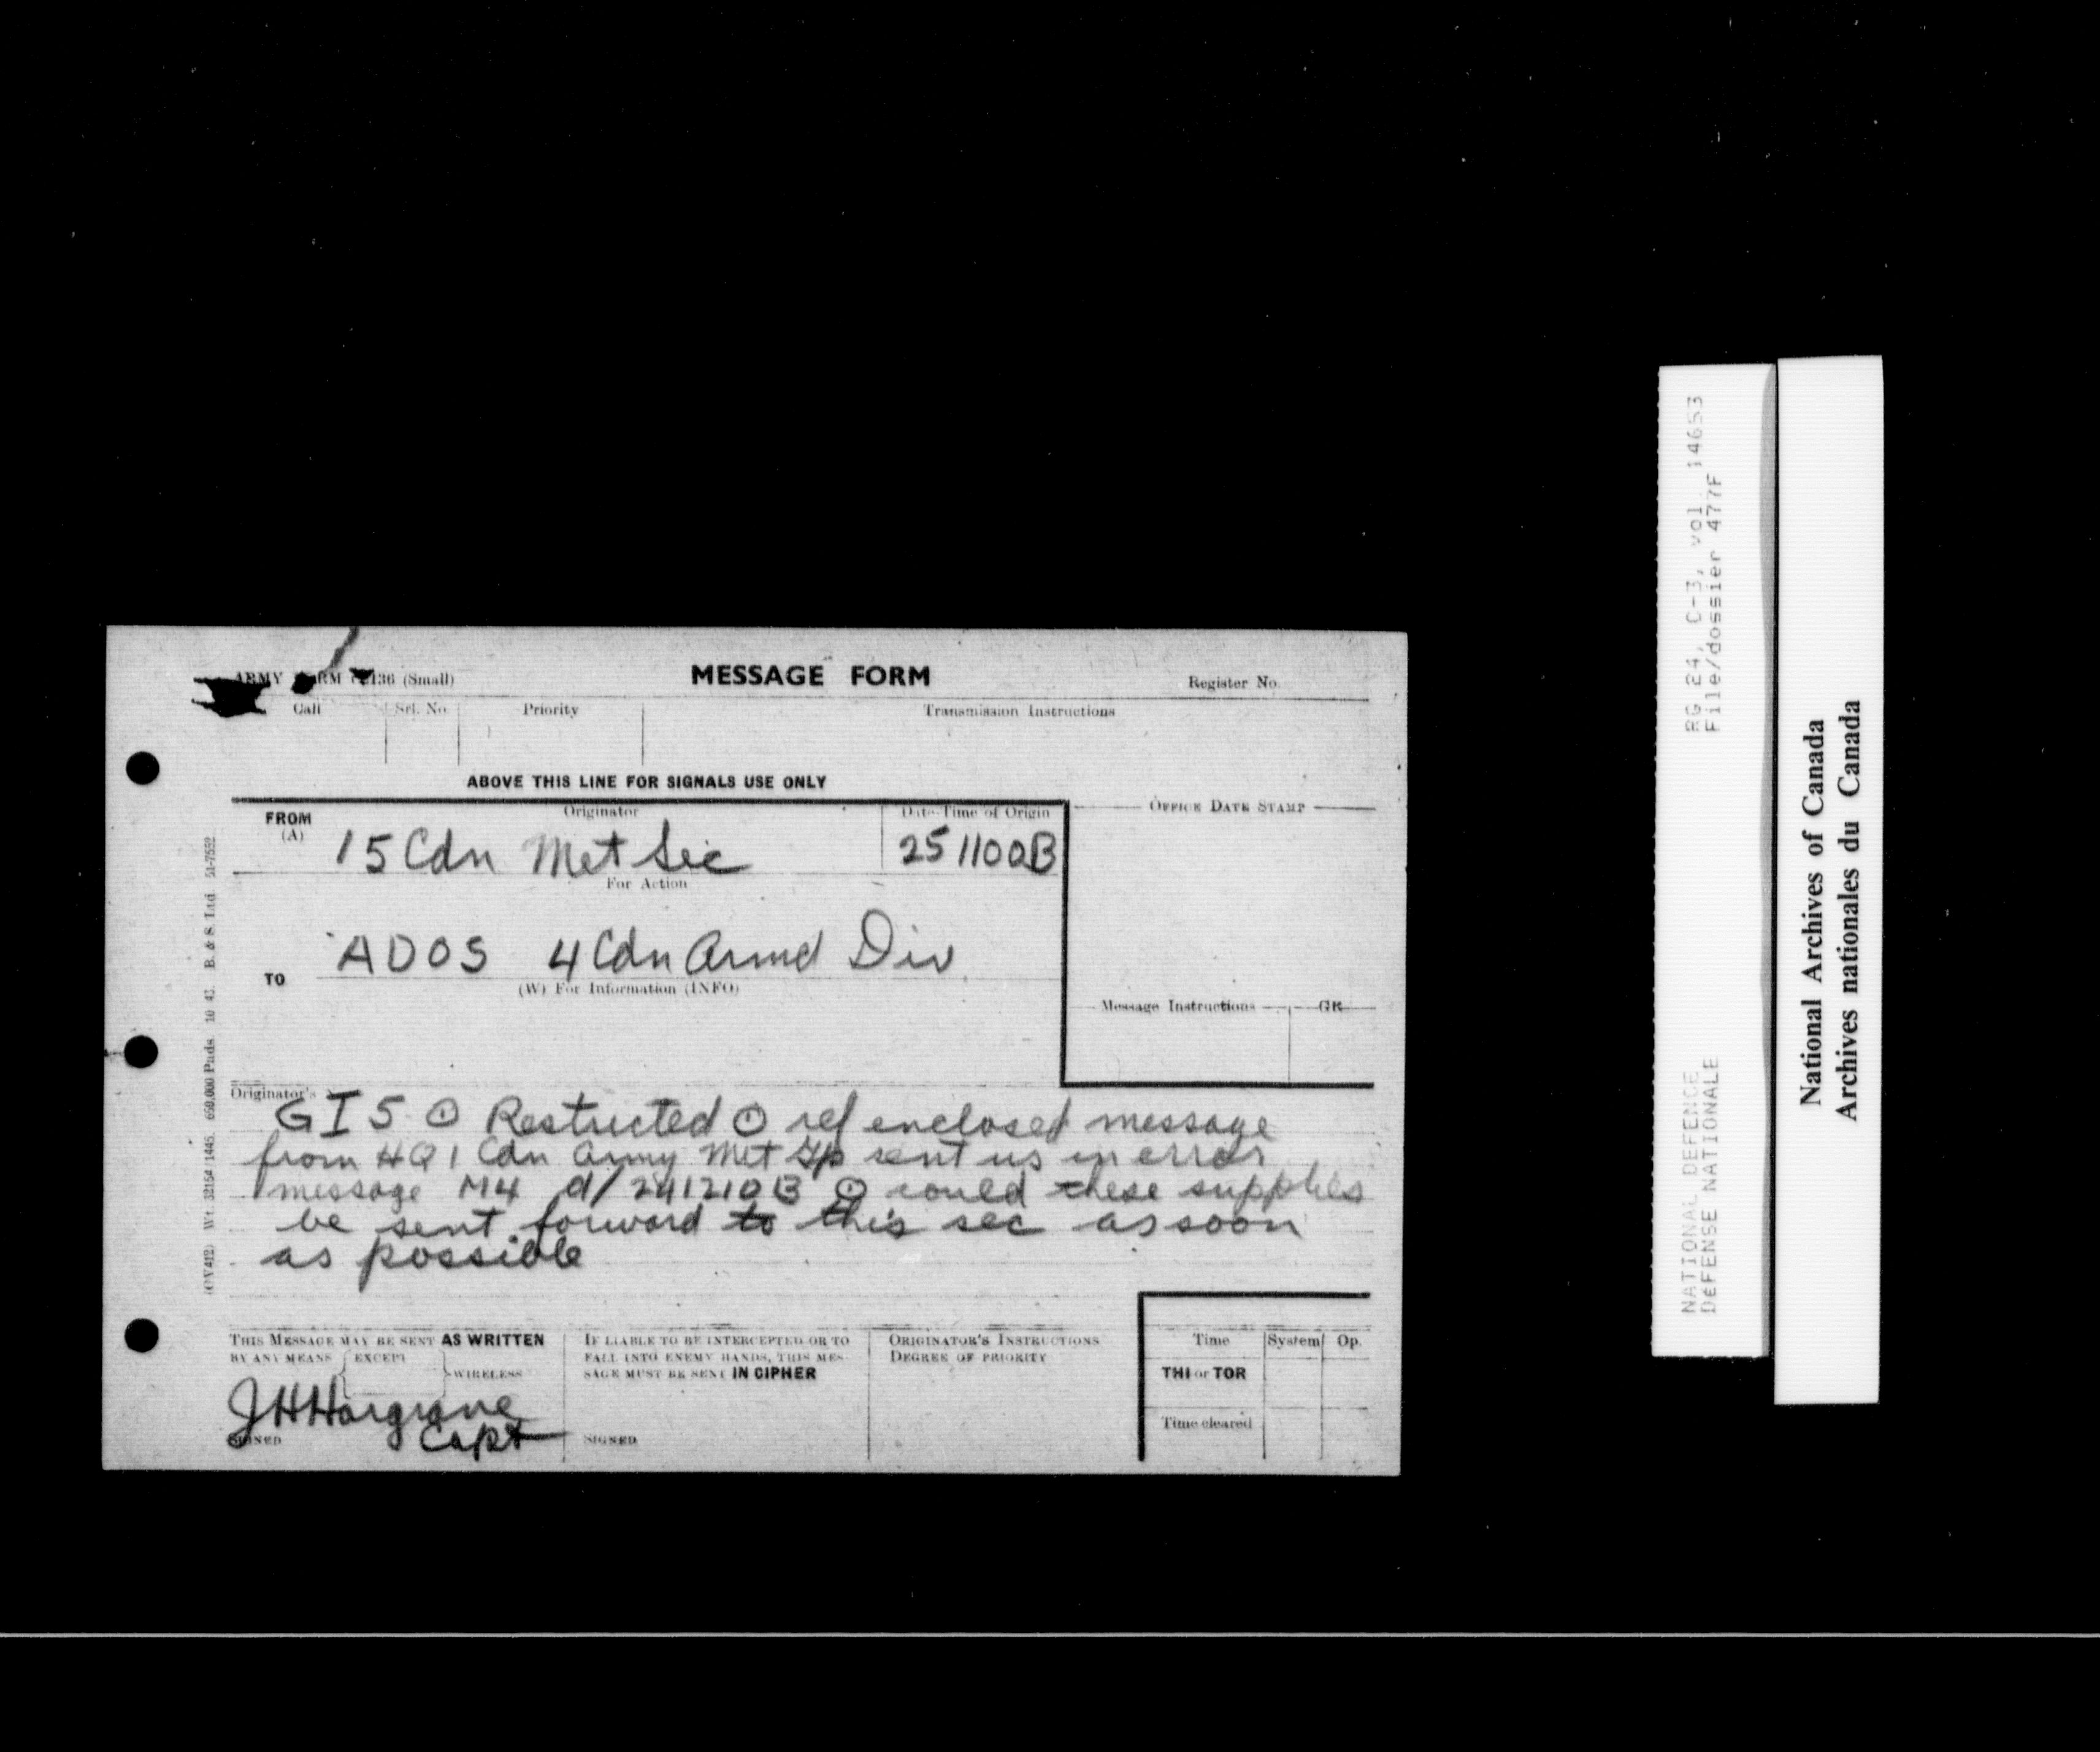 ARMY FORM 136 (Small)
MESSAGE FORM
Register No.
Call Srl. No Priority Transmission Instructions
ABOVE THIS LINE FOR SIGNALS USE ONLY
FROM (A) Originator Date-Time of Origin
15 Cdn Met Sec 251100B
OFFICE DATE STAMP
For Action
TO ADOS 4 Cdn Armd Div
(W) For Information (INFO)
Message Instructions GR
Originator's
GI 5 ⊙ Restricted ⊙ ref enclosed message
from HQ 1 Cdn Army Met Gp sent us in error
message M4 d/241210B ⊙ could these supplies
be sent forward to this sec as soon
as possible
THIS MESSAGE MAY BE SENT AS WRITTEN
BY ANY MEANS EXCEPT WIRELESS
JHHargrave
Capt
SIGNED
IF LIABLE TO BE INTERCEPTED OR TO
FALL INTO ENEMY HANDS, THIS MES-
SAGE MUST BE SENT IN CIPHER
SIGNED
ORIGINATOR'S INSTRUCTIONS
DEGREE OF PRIORITY
Time System Op.
THI or TOR
Time cleared
(OV412) Wt. 32154/1445. 650,000 Pads. 10/43. B. & S. Ltd. 51-7552
NATIONAL DEFENCE RG 24, C-3, vol. 14653
DEFENSE NATIONALE File/dossier 477F
National Archives of Canada
Archives nationales du Canada